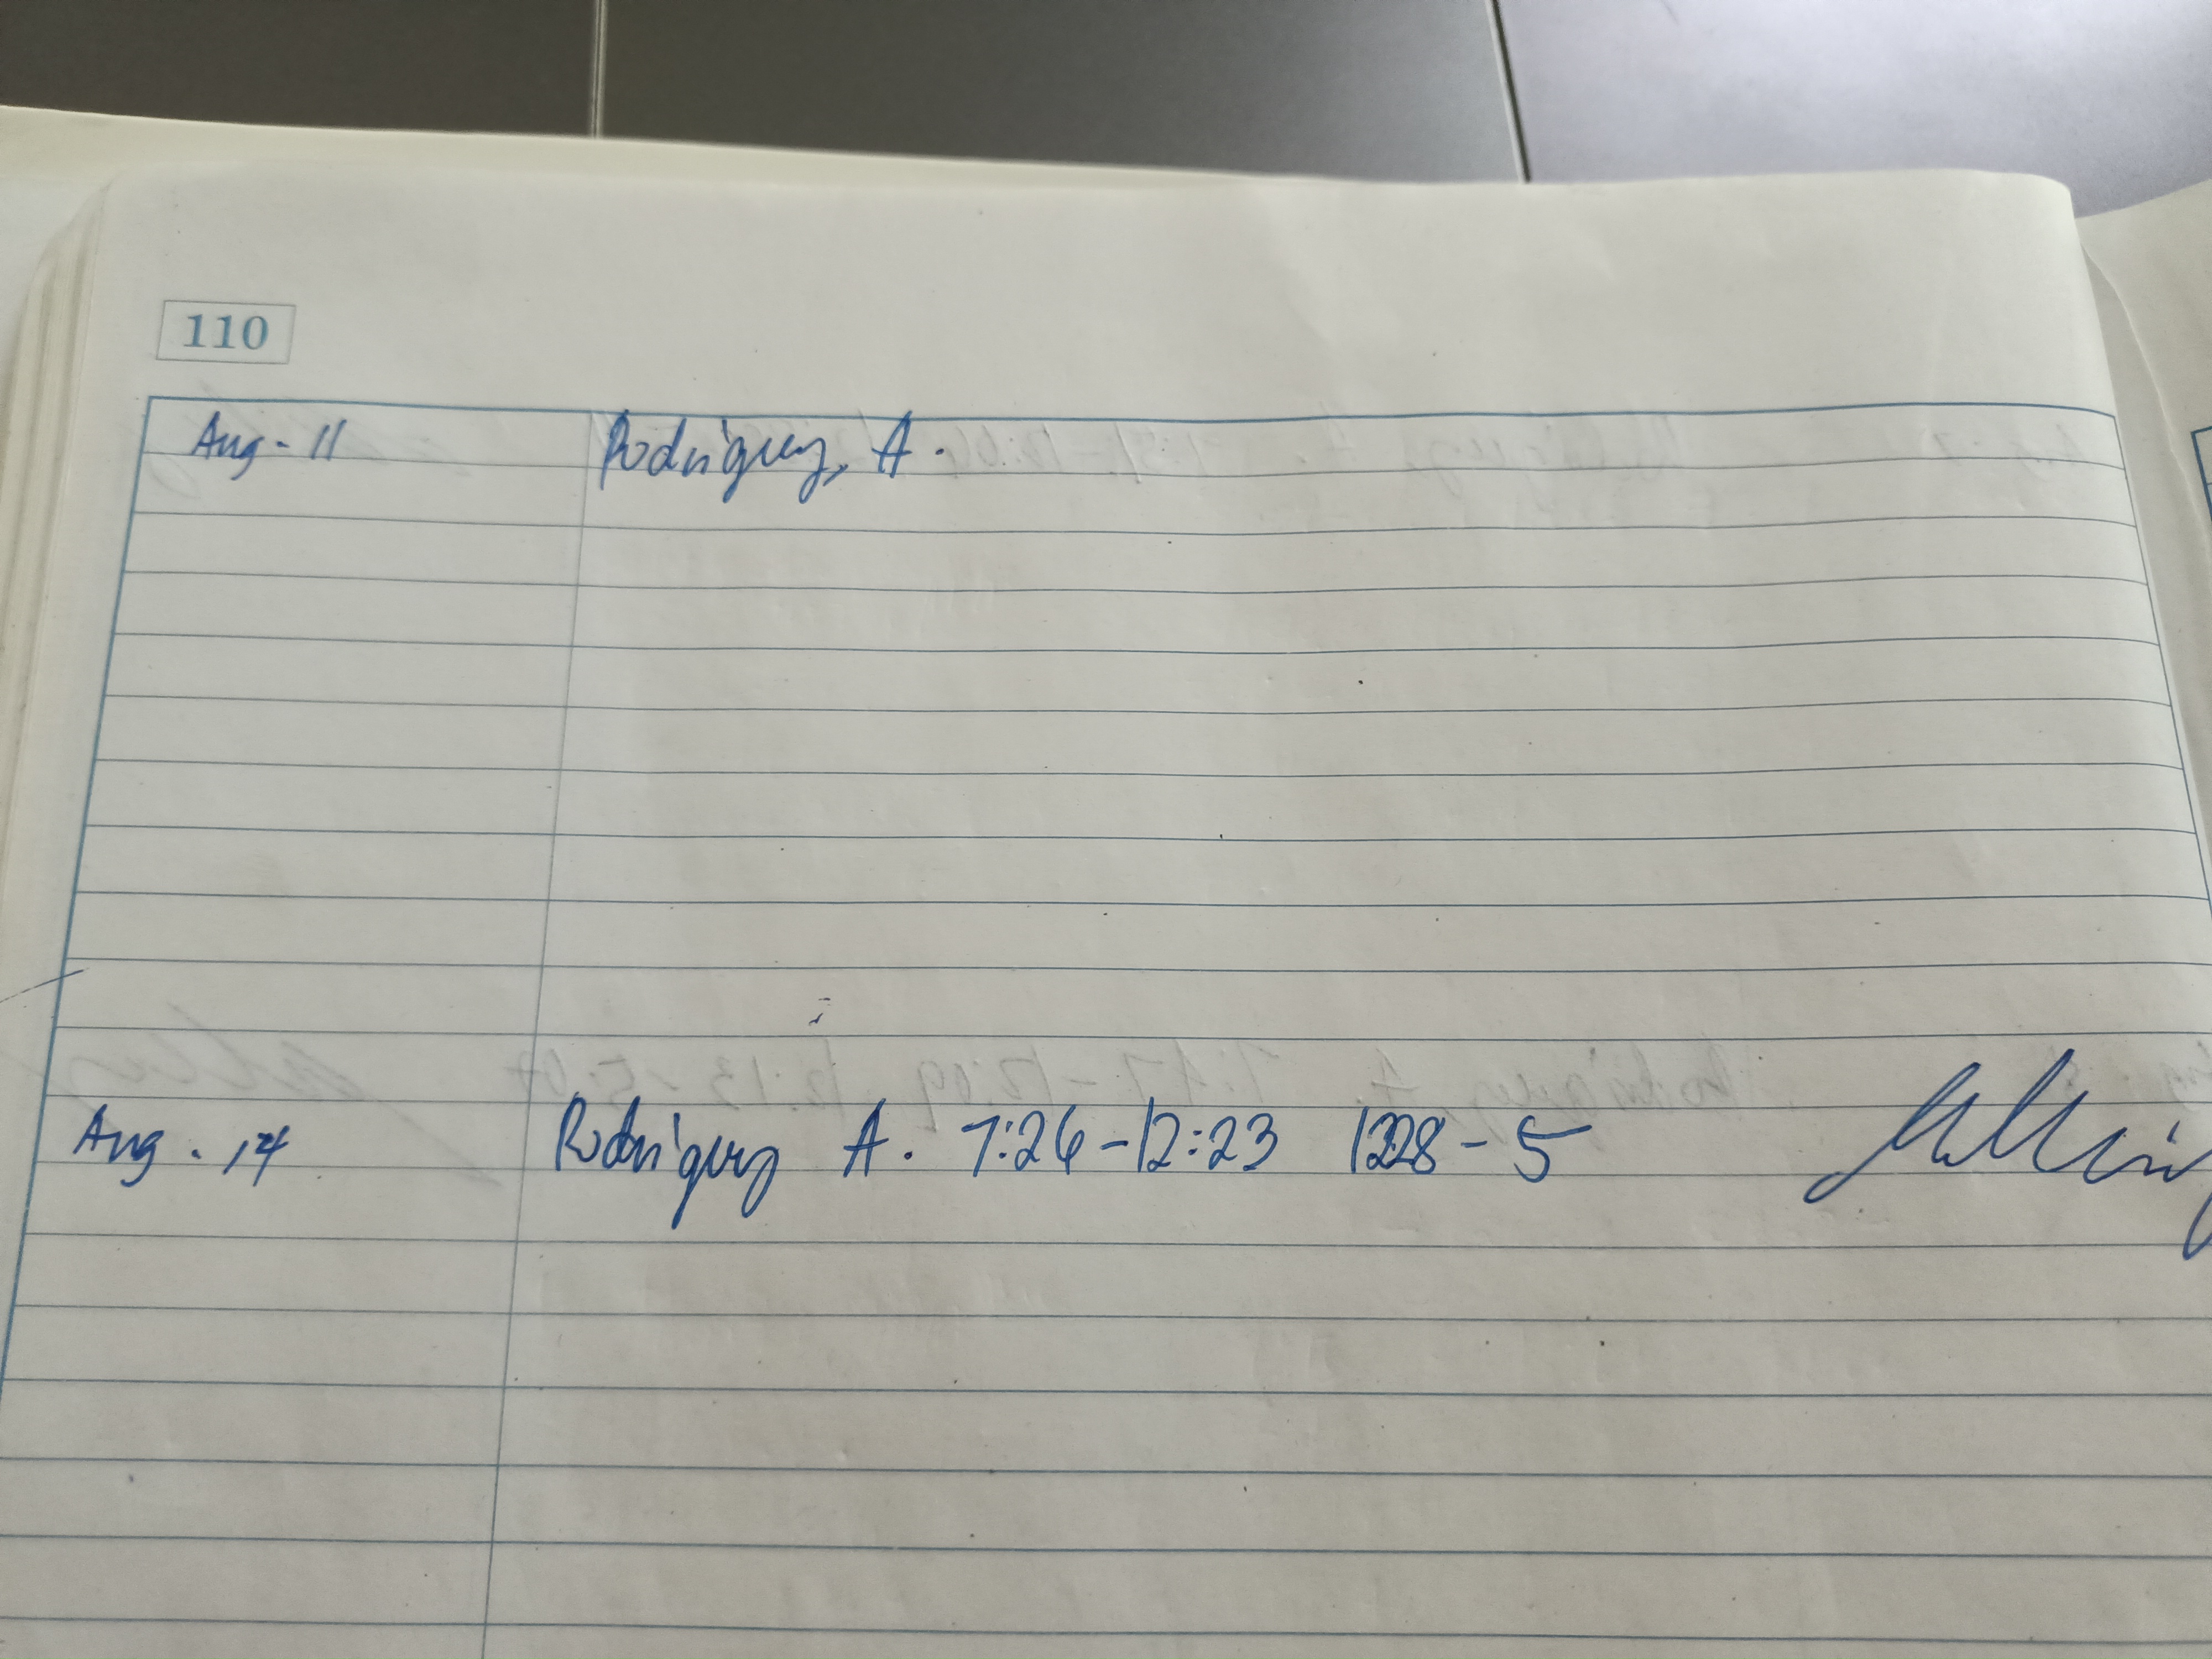 110
Aug - 11 Rodriguez, A.
Aug. 14 Rodriguez A. 7:26-12:23 1228-5